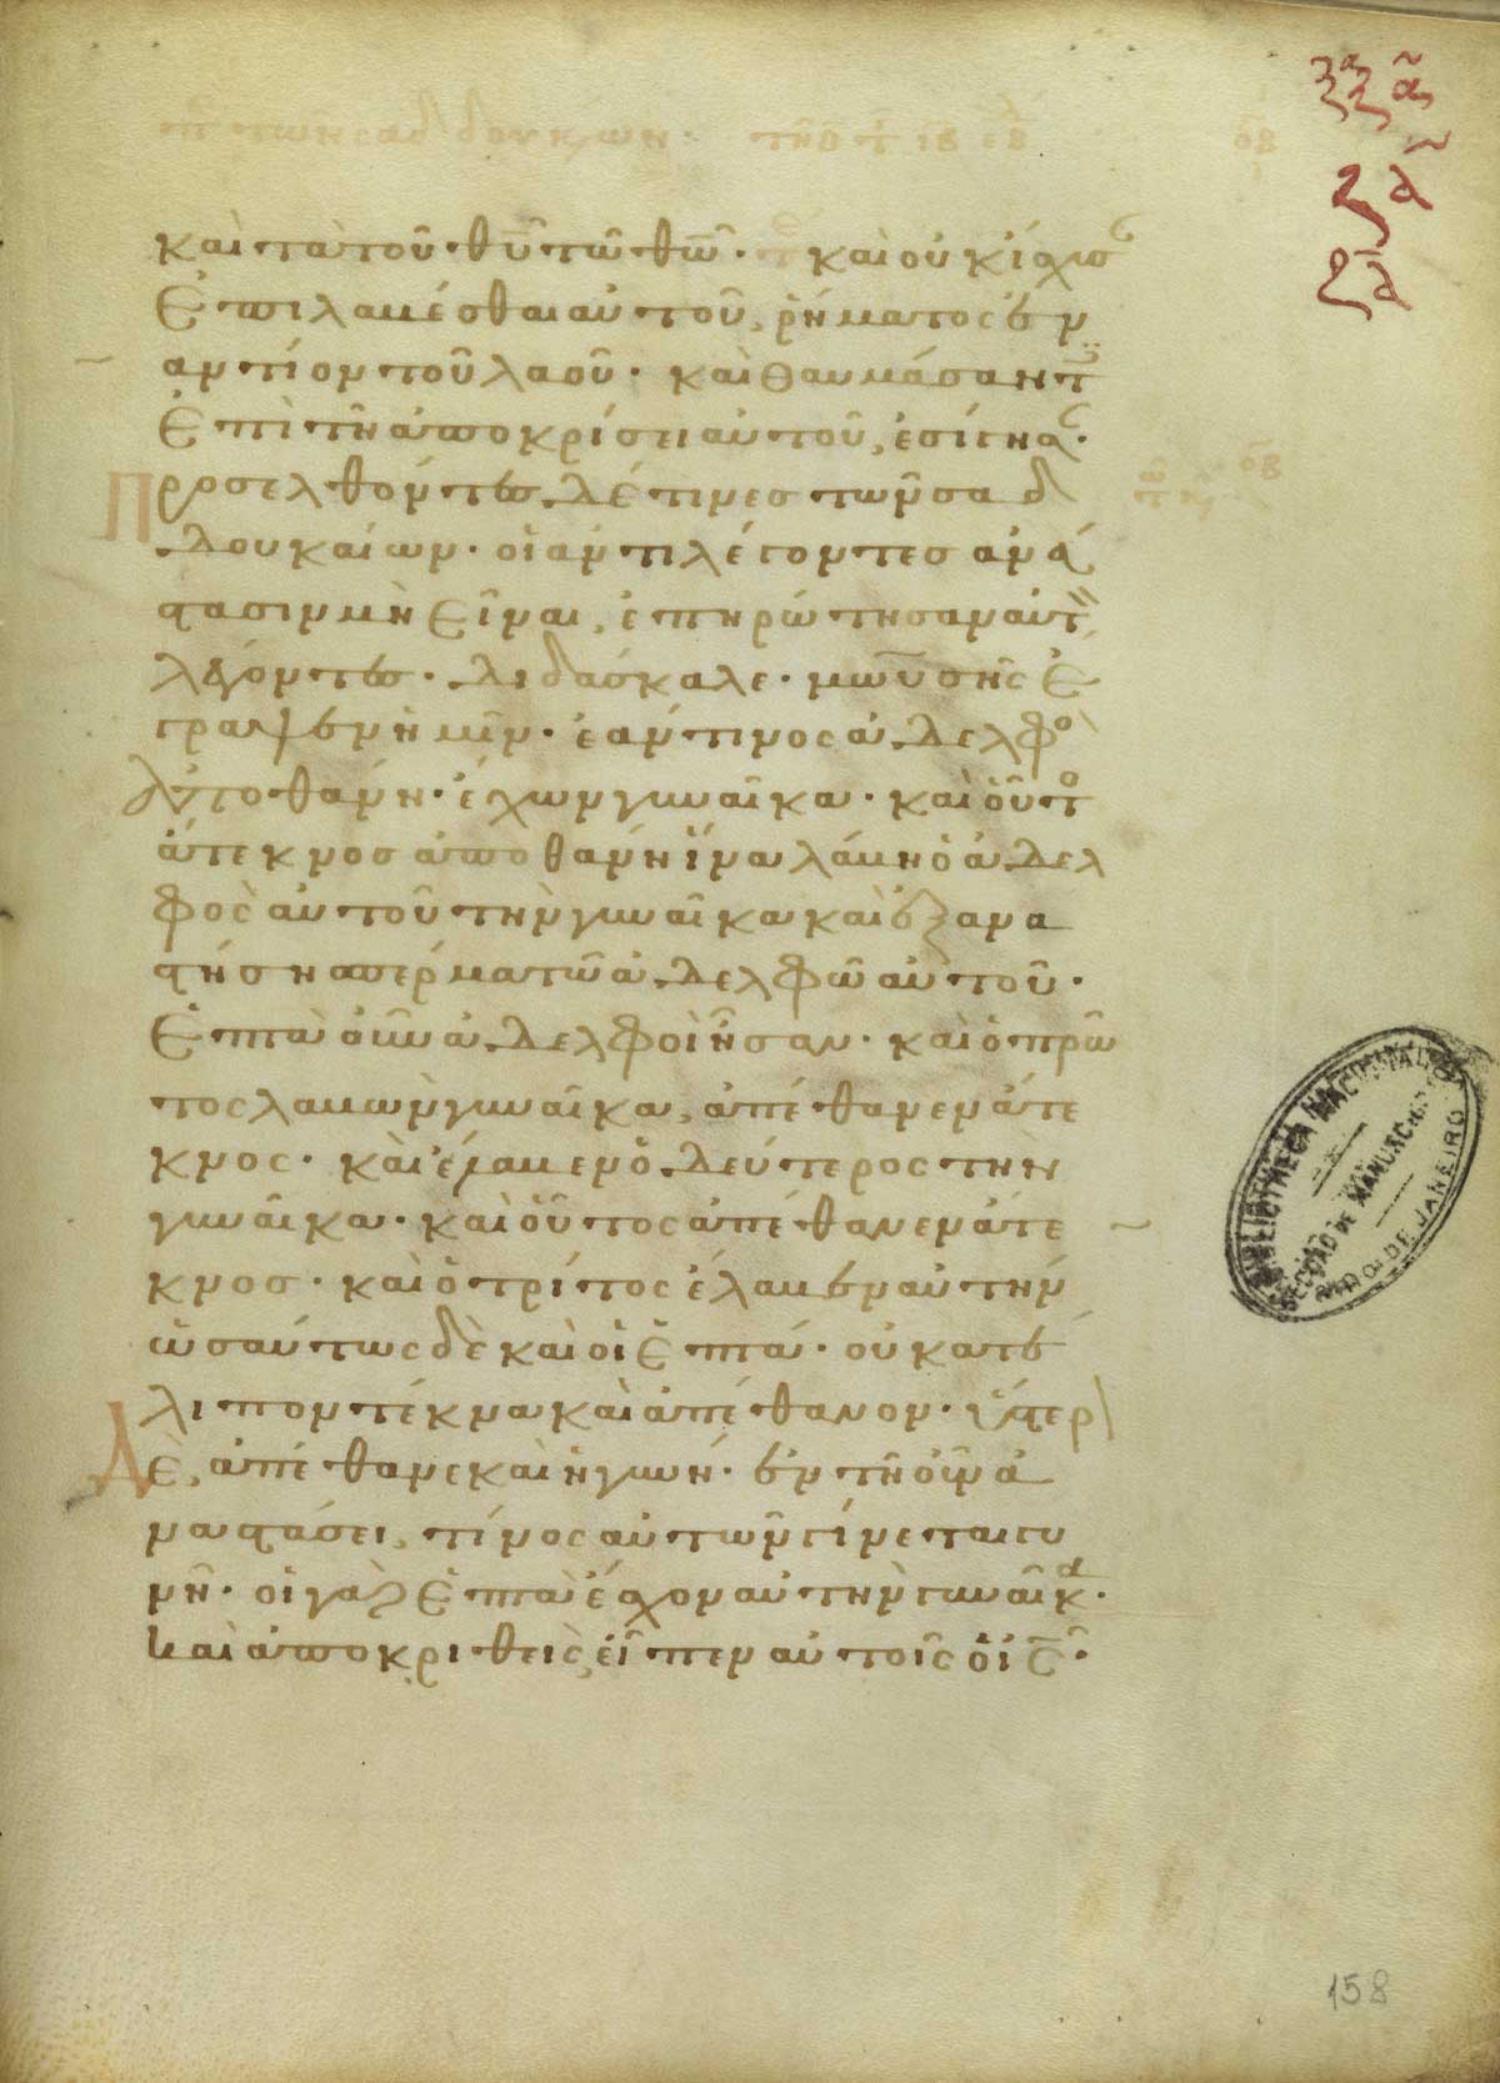 καὶ τὰ τοῦ θυ τῶ θω· καὶ οὐκ ἴσχυσ
ἐπιλαβέσθαι αὐτοῦ, ῥήματος ἐν
αντίον τοῦ λαοῦ· καὶ θαυμάσαντ
ἐπὶ τῆ ἀποκρίσει αὐτοῦ, ἐσίγησ·
Προσελθόντες δέ τινες τῶν σαδ
δουκαίων· οἱ ἀντιλέγοντες ἀνά
στασιν μὴ εἶναι, ἐπηρώτησαν αὐτ
λέγοντες· διδάσκαλε· μωϋσῆς ἔ
γραψεν ἡμῖν· ἐάν τινος ἀδελφο
ἀποθάνη· ἔχων γυναῖκα· καὶ οὗτο
ἄτεκνος ἀποθάνη ἵνα λάβη ὁ ἀδελ
φὸς αὐτοῦ τὴν γυναῖκα καὶ ἐξανα
στήση σπέρμα τῶ ἀδελφῶ αὐτοῦ·
Ἑπτὰ οὖν ἀδελφοὶ ἦσαν· καὶ ὁ πρῶ
τος λαβὼν γυναῖκα, ἀπέθανεν ἄτε
κνος· καὶ ἔλαβεν ὁ δεύτερος τὴν
γυναῖκα· καὶ οὗτος ἀπέθανεν ἄτε
κνος· καὶ ὁ τρίτος ἔλαβεν αὐτήν
ὡσαύτως δὲ καὶ οἱ ἑπτά· οὐ κατέ
λιπον τέκνα καὶ ἀπέθανον· ὕστερ
Δὲ, ἀπέθανε καὶ ἡ γυνή· ἐν τῆ οὖν ἀ
ναστάσει, τίνος αὐτῶν γίνεται γυ
νή· οἱ γὰρ ἑπτὰ ἔσχον αὐτὴν γυναῖκα·
Καὶ ἀποκριθεὶς εἶπεν αὐτοῖς ὁ ις·
BIBLIOTHECA NACIONAL
SECÇÃO DE MANUSCR
RIO DE JANEIRO
158